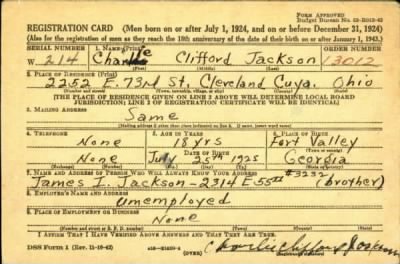 FORM APPROVED
REGISTRATION CARD (Men born on or after July 1, 1924, and on or before December 31, 1924)
(Also for the registration of men as they reach the 18th anniversary of the date of their birth on or after January 1, 1943.)
SERIAL NUMBER
1. NAME (Print)
ORDER NUMBER
W 214 Charlie Clifford Jackson 13012
(First) (Middle) (Last)
2. PLACE OF RESIDENCE (Print)
2252 E 73rd St. Cleveland Cuya. Ohio
(Number and street) (Town, township, village, or city) (County) (State)
[THE PLACE OF RESIDENCE GIVEN ON LINE 2 ABOVE WILL DETERMINE LOCAL BOARD
JURISDICTION; LINE 2 OF REGISTRATION CERTIFICATE WILL BE IDENTICAL]
3. MAILING ADDRESS
Same
(Mailing address if other than place indicated on line 2. If same, insert word same)
4. TELEPHONE
5. AGE IN YEARS
6. PLACE OF BIRTH
None 18 yrs Fort Valley
DATE OF BIRTH
(Town or county)
None July 25th 1925 Georgia
(Exchange) (Number)
(Mo.) (Day) (Yr.)
(State or country)
7. NAME AND ADDRESS OF PERSON WHO WILL ALWAYS KNOW YOUR ADDRESS
#3232
James L. Jackson - 2314 E-55th (brother)
8. EMPLOYER'S NAME AND ADDRESS
Unemployed
9. PLACE OF EMPLOYMENT OR BUSINESS
None
(Number and street or R. F. D. number) (Town) (County) (State)
I AFFIRM THAT I HAVE VERIFIED ABOVE ANSWERS AND THAT THEY ARE TRUE.
DSS Form 1 (Rev. 11-16-42)
(OVER)
Charlie Clifford Jackson